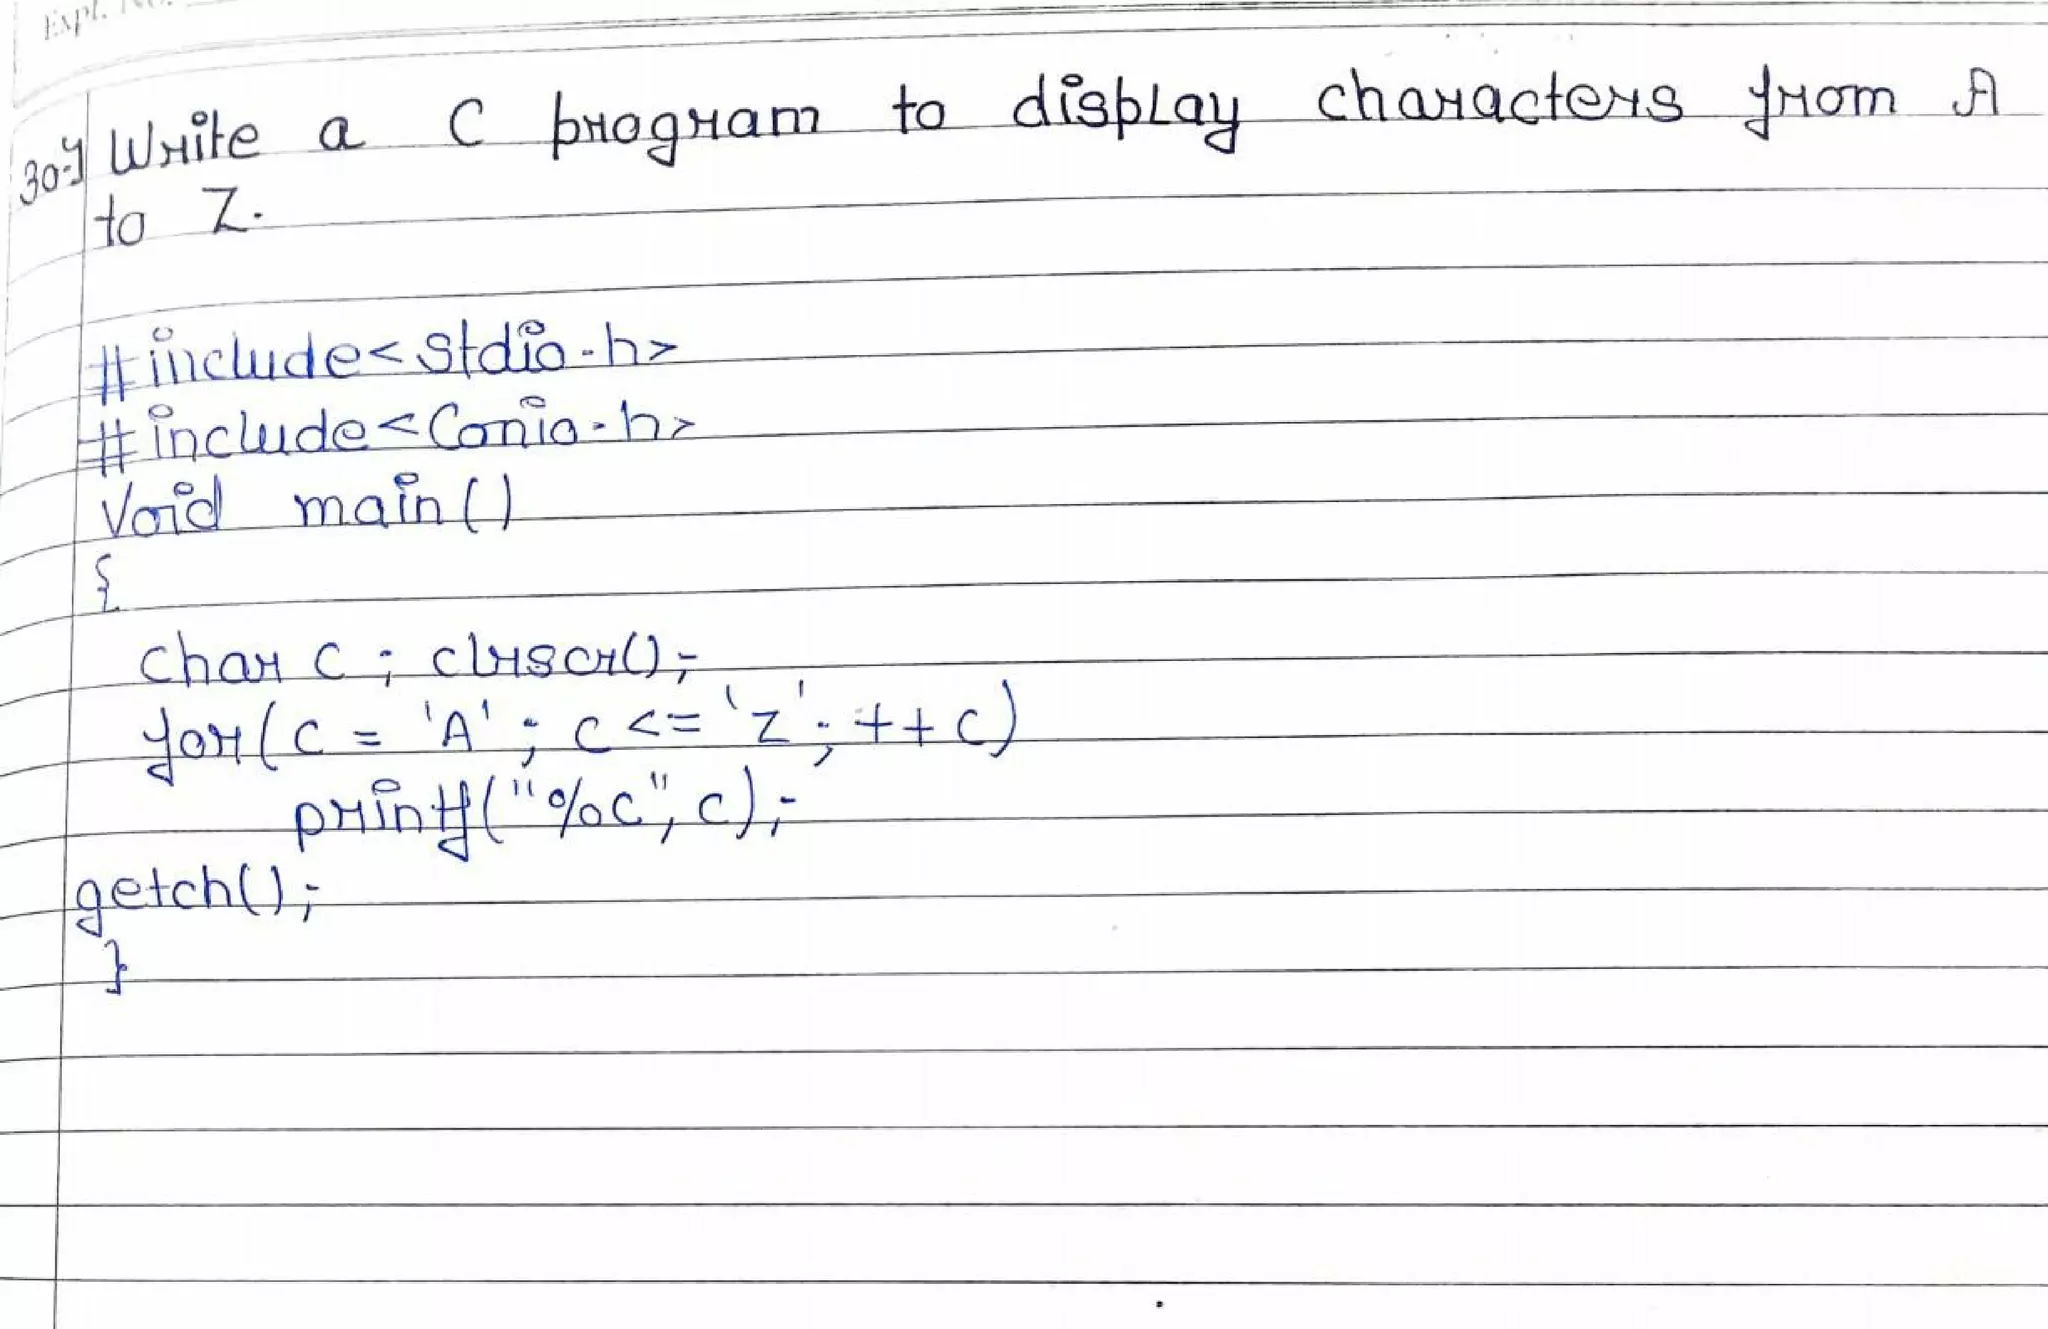 Expt. No.
30.) Write a C program to display characters from A
to Z.
#include<stdio.h>
#include<Conio.h>
Void main()
{
char c; clrscr();
for(c = 'A'; c <= 'Z'; ++c)
printf("%c", c);
getch();
}